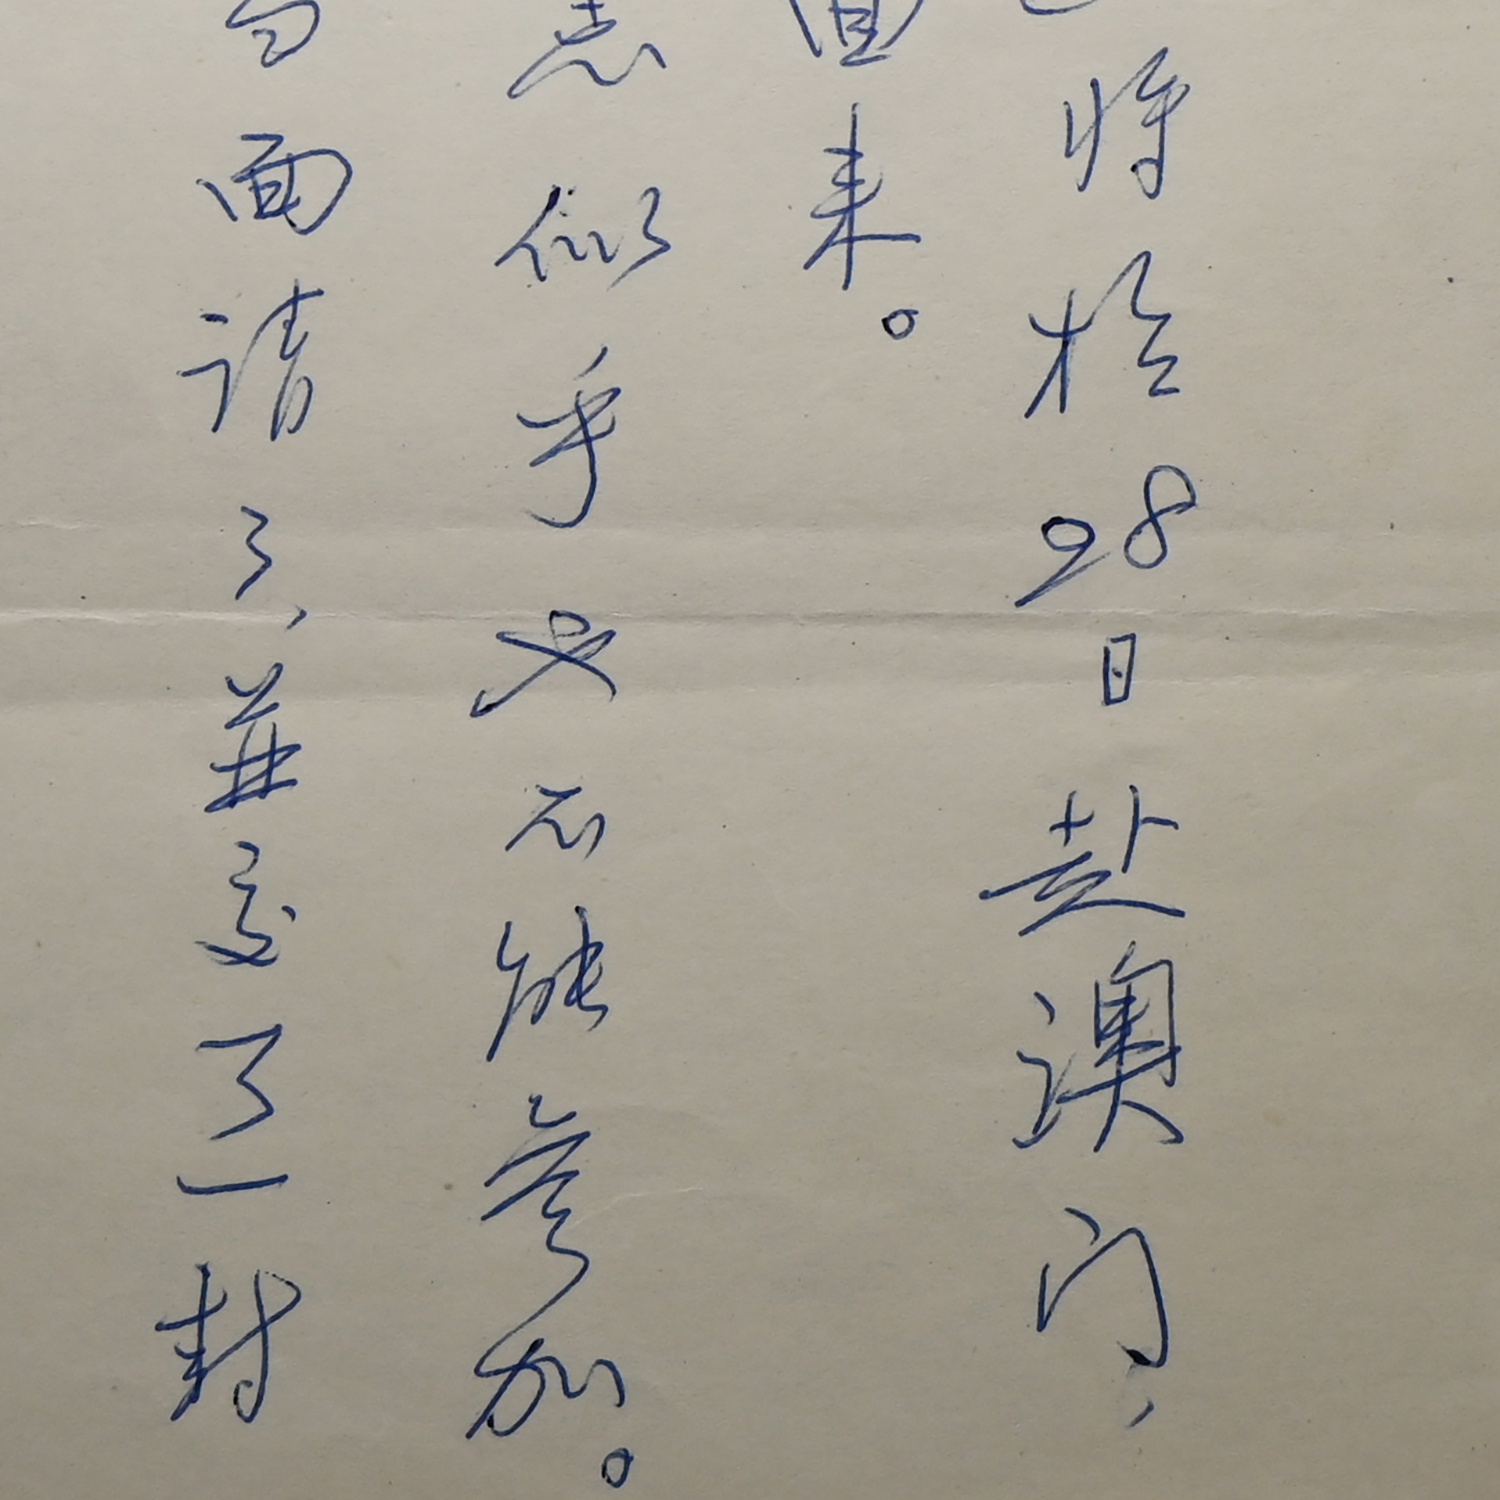 将於28日赴澳门，
回来。
似乎又不能参加。
面请了，並交了一封